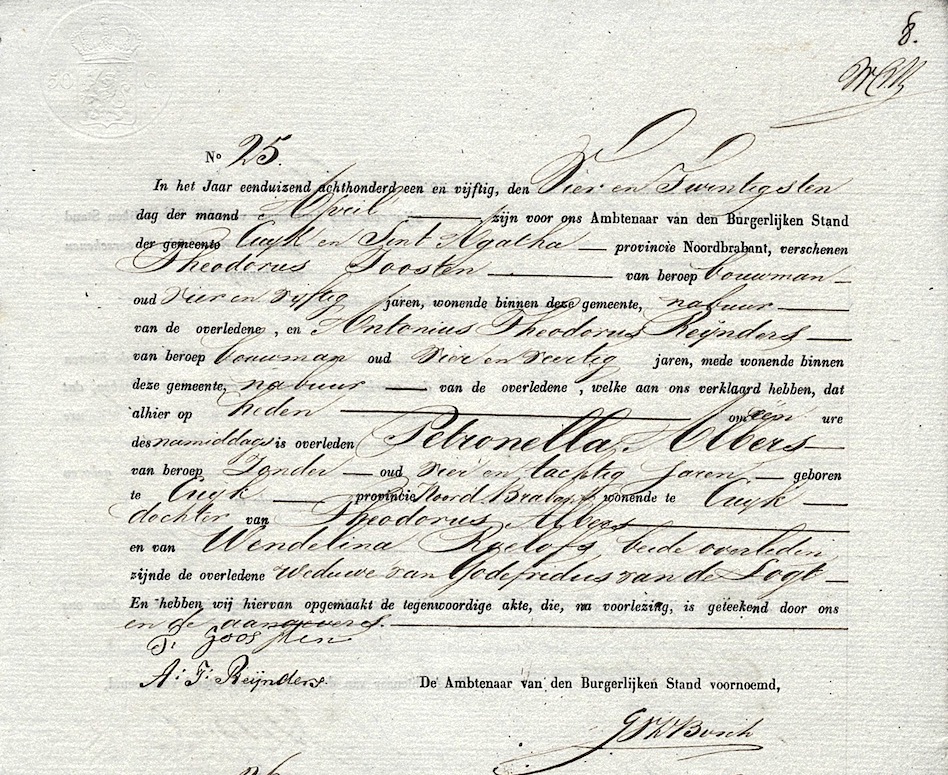 8.
No 25.
In het Jaar eenduizend achthonderd een en vijftig, den Vier en Twintigsten
dag der maand April zijn voor ons Ambtenaar van den Burgerlijken Stand
der gemeente Cuyk en Sint Agatha provincie Noordbrabant, verschenen
Theodorus Joosten van beroep bouwman
oud Vier en Vijftig jaren, wonende binnen deze gemeente, nabuur
van de overledene, en Antonius Theodorus Reijnders
van beroep bouwman oud Vier en Veertig jaren, mede wonende binnen
deze gemeente, nabuur van de overledene, welke aan ons verklaard hebben, dat
alhier op heden om een ure
des namiddags is overleden Petronella Albers
van beroep Zonder oud Vier en tachtig jaren geboren
te Cuyk provincie Noord Braband wonende te Cuyk
dochter van Theodorus Albers
en van Wendelina Roelofs, beide overleden
zijnde de overledene Weduwe van Godefridus van de Logt
En hebben wij hiervan opgemaakt de tegenwoordige akte, die, na voorlezing, is geteekend door ons
en de aangevers.
T. Joosten
A: T: Reijnders.
De Ambtenaar van den Burgerlijken Stand voornoemd,